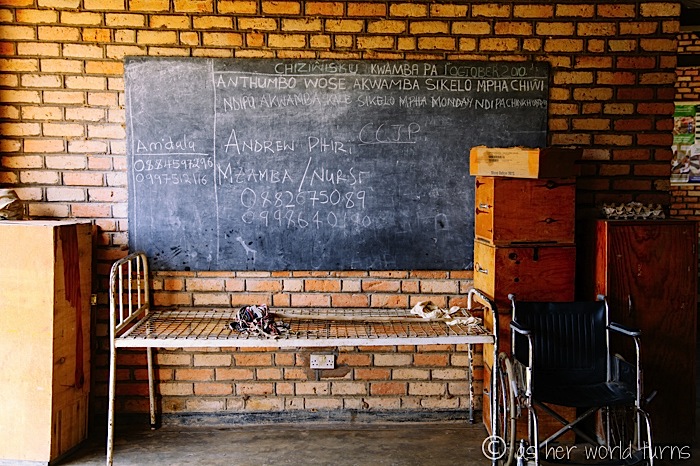 CHIZINSKIU KWAMBA PA 1 OCTOBER 200
ANTHUMBO WOSE AKWAMBA SIKELO MPHA CHIWI
NDIPO AKWAMBA SIKELO MPHA MONDAY NDI PACHINKHWE
CCJP
Am'dala
0884597296
0997512116
ANDREW PHIRI
MZAMBA / NURSE
0882675089
0998640190
© as her world turns